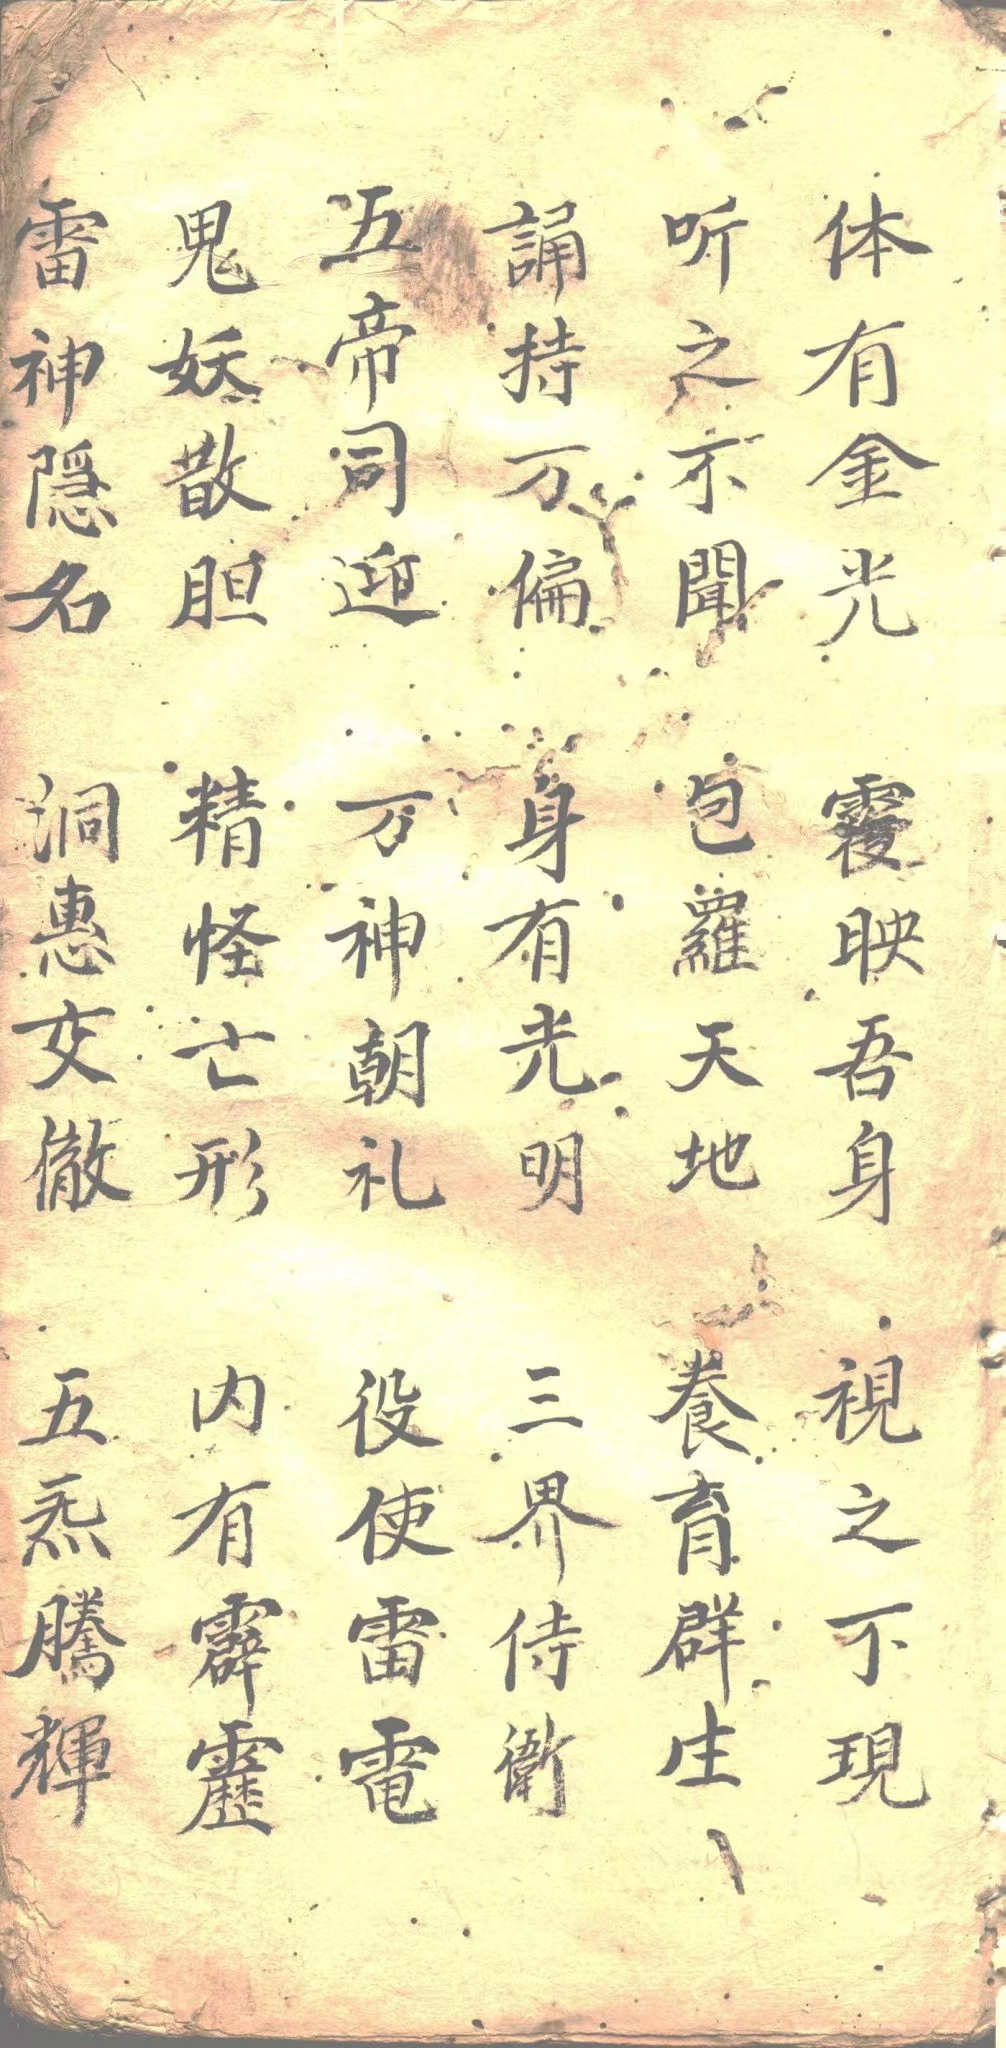 体有金光 覆映吾身 視之不現
听之不聞 包羅天地 養育群生
誦持万偏 身有光明 三界侍衛
五帝司迎 万神朝礼 役使雷電
鬼妖散胆 精怪亡形 内有霹靂
雷神隠名 洞惠交徹 五炁騰輝